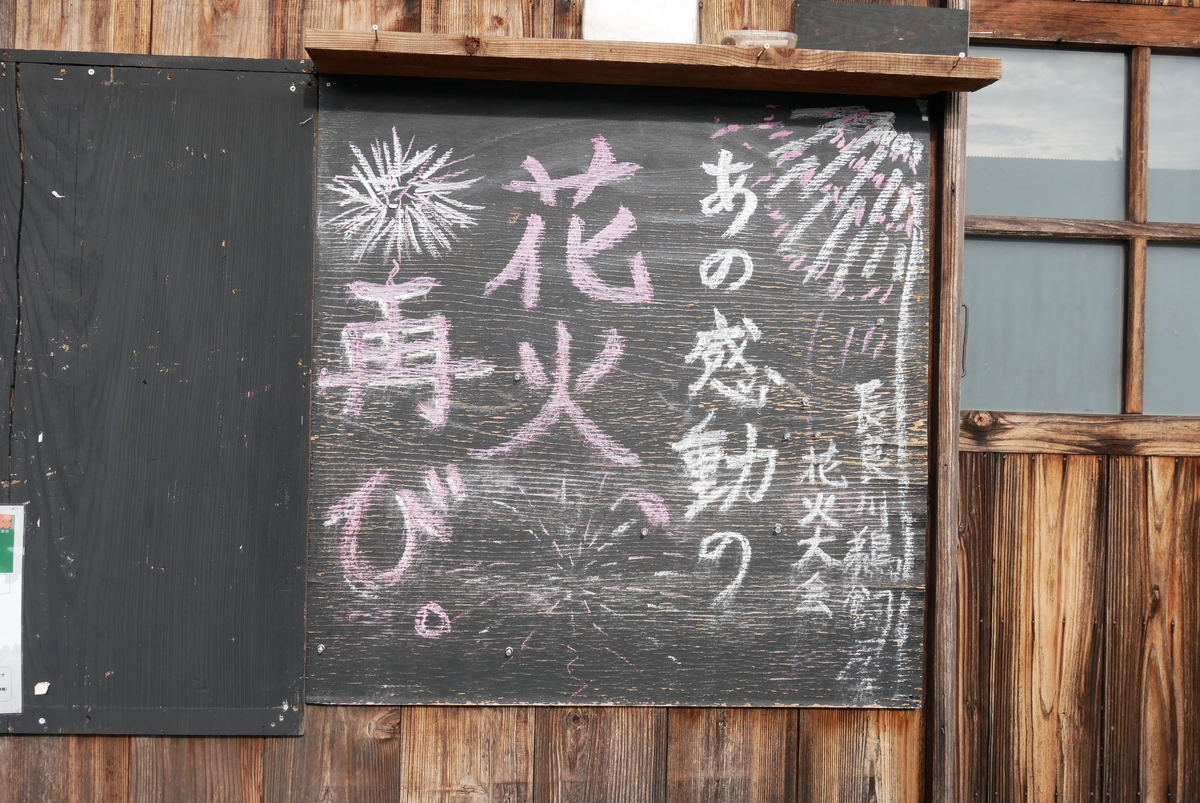 長良川鵜飼
花火大会
あの感動の
花火
再び。